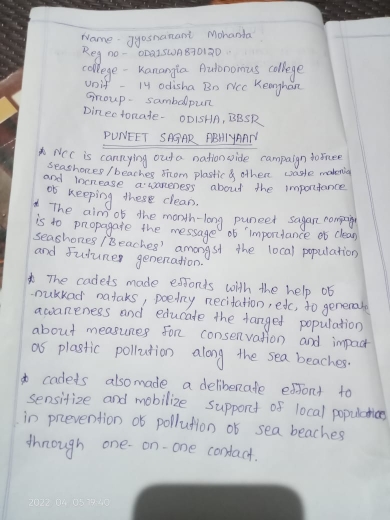 Name - Jyoshnarani Mohanta
Reg no - OD21SWA870120
college - Karanjia Autonomus college
Unit - 14 odisha Bn Ncc Keonjhar
Group - Sambalpur
Directorate - ODISHA, BBSR
PUNEET SAGAR ABHIYAAN
* NCC is carrying out a nationwide campaign to free
seashores/beaches from plastic & other waste material
and increase awareness about the importance
of keeping these clean.
* The aim of the month-long puneet sagar campaign
is to propagate the message of 'Importance of clean
seashores/Beaches' amongst the local population
and future generation.
* The cadets made efforts with the help of
nukkad nataks, poetry recitation, etc, to generate
awareness and educate the target population
about measures for conservation and impact
of plastic pollution along the sea beaches.
* cadets also made a deliberate effort to
sensitize and mobilize support of local population
in prevention of pollution of sea beaches
through one-on-one contact.
2022-04-05